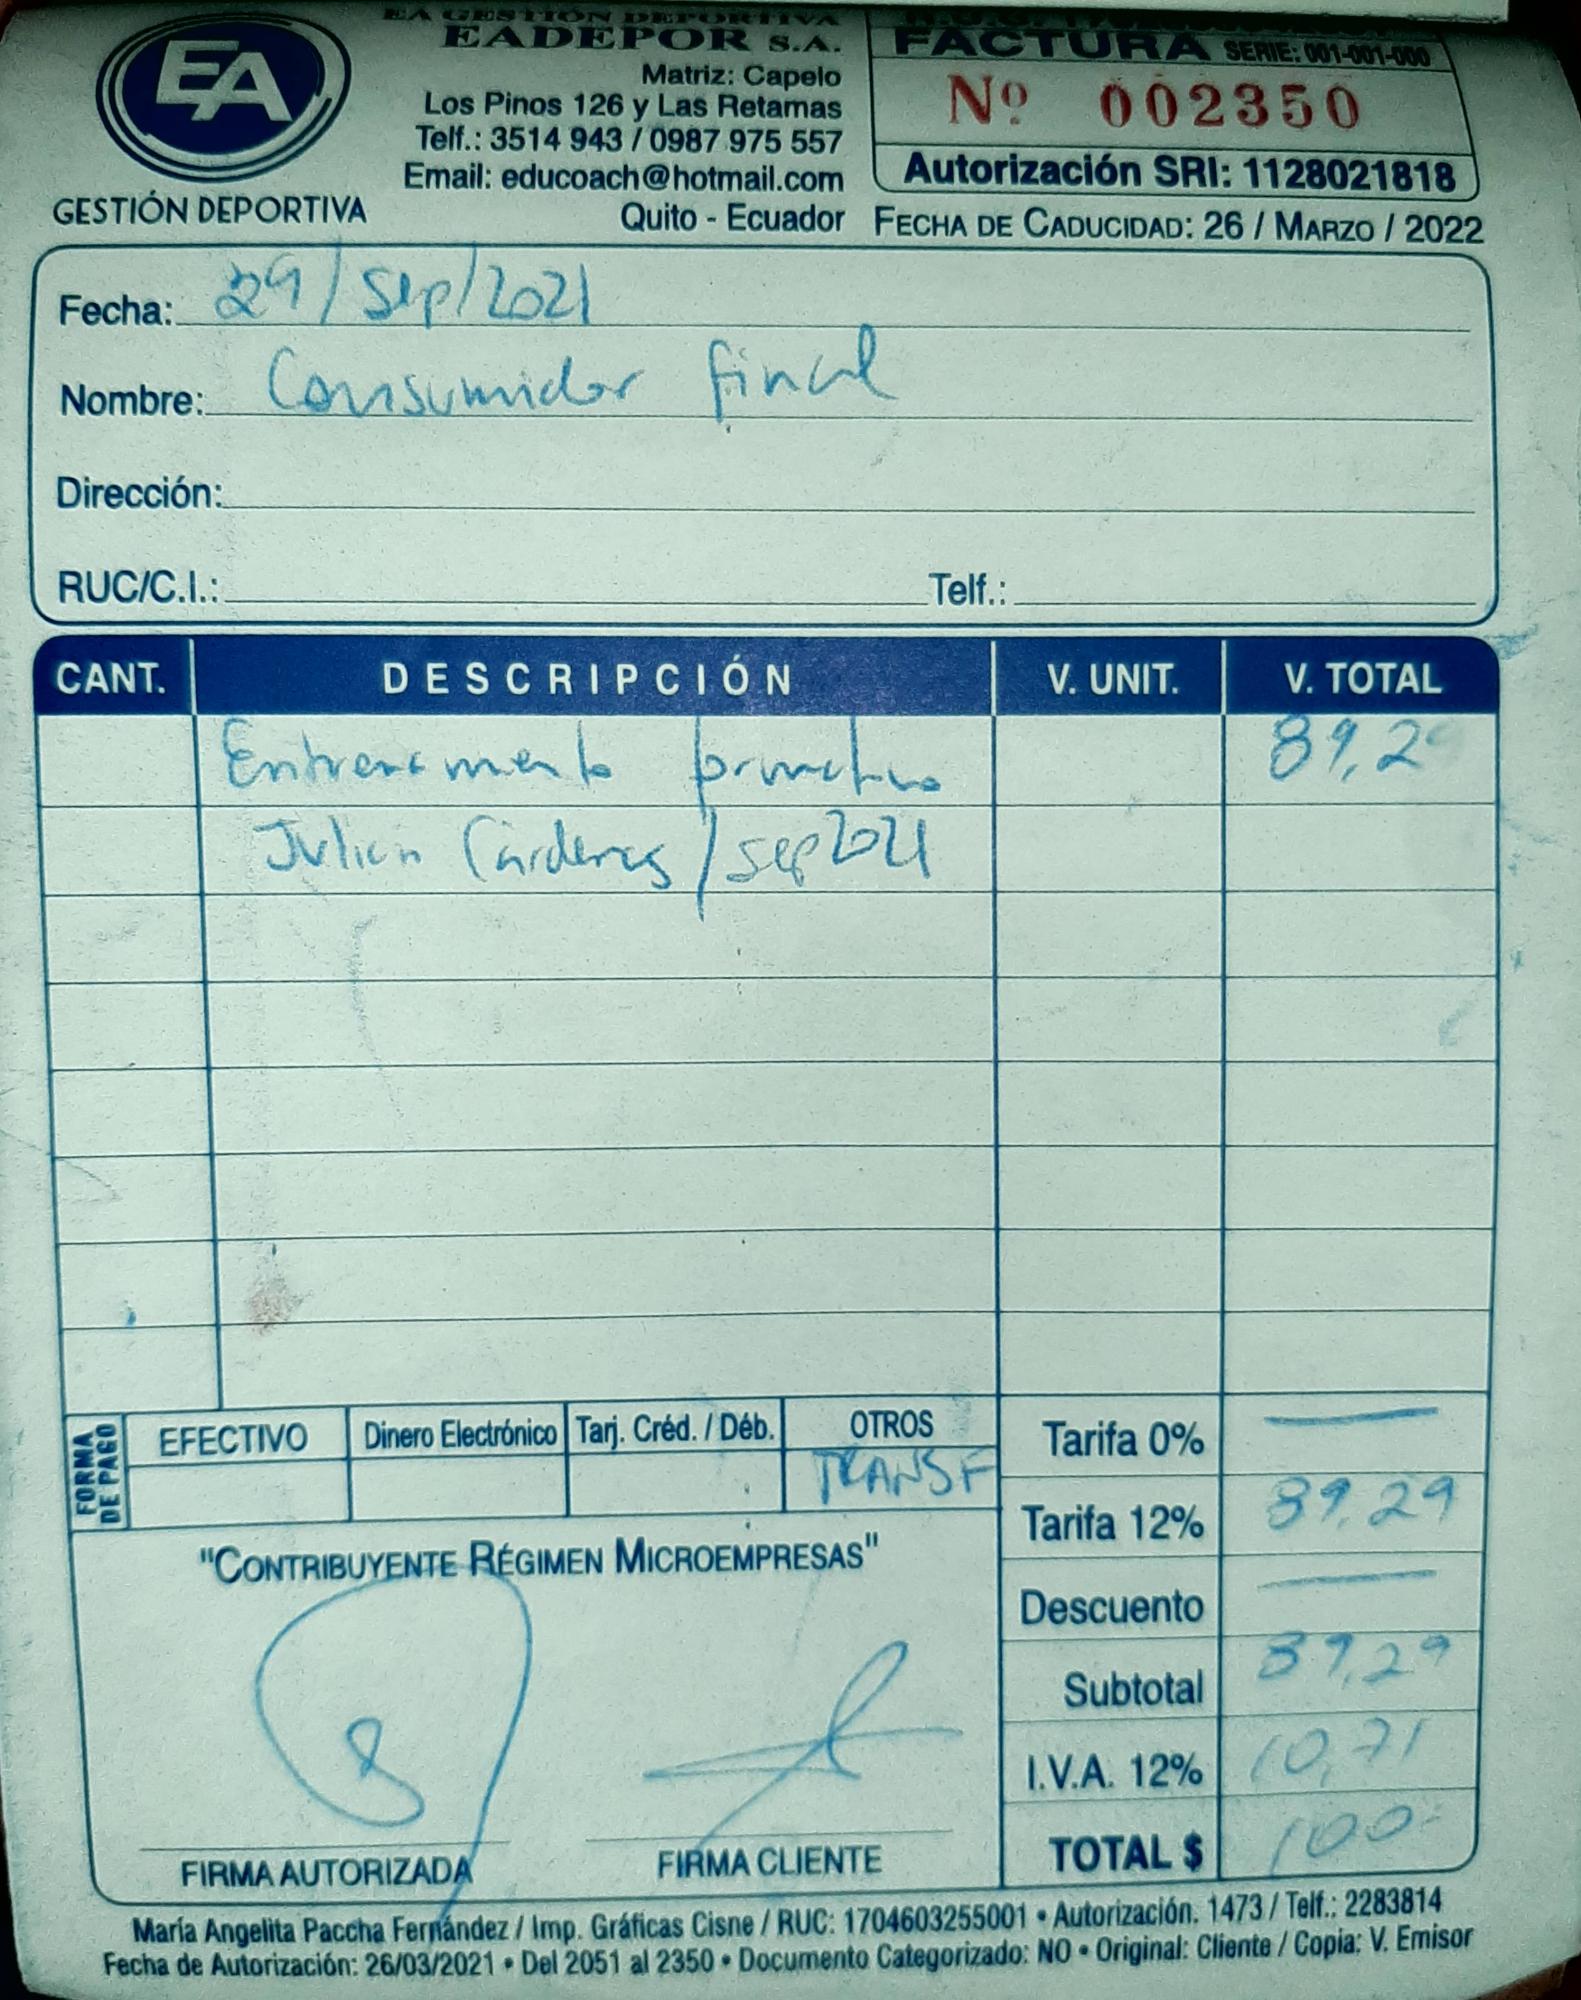 EA GESTIÓN DEPORTIVA
EADEPOR S.A.
Matriz: Capelo
Los Pinos 126 y Las Retamas
Telf.: 3514 943 / 0987 975 557
Email: educoach@hotmail.com
Quito - Ecuador
EA
GESTIÓN DEPORTIVA
FACTURA SERIE: 001-001-000
Nº 002350
Autorización SRI: 1128021818
FECHA DE CADUCIDAD: 26 / MARZO / 2022
Fecha: 29/Sep/2021
Nombre: Consumidor final
Dirección:
RUC/C.I.: Telf.:
CANT. DESCRIPCIÓN V. UNIT. V. TOTAL
Entrenamiento formativo 89,29
Julián Cárdenas / sep 2021
FORMA DE PAGO
EFECTIVO Dinero Electrónico Tarj. Créd. / Déb. OTROS
TRANSF
Tarifa 0% —
Tarifa 12% 89,29
Descuento —
Subtotal 89,29
I.V.A. 12% 10,71
TOTAL $ 100-
"CONTRIBUYENTE RÉGIMEN MICROEMPRESAS"
FIRMA AUTORIZADA FIRMA CLIENTE
María Angelita Paccha Fernández / Imp. Gráficas Cisne / RUC: 1704603255001 • Autorización. 1473 / Telf.: 2283814
Fecha de Autorización: 26/03/2021 • Del 2051 al 2350 • Documento Categorizado: NO • Original: Cliente / Copia: V. Emisor